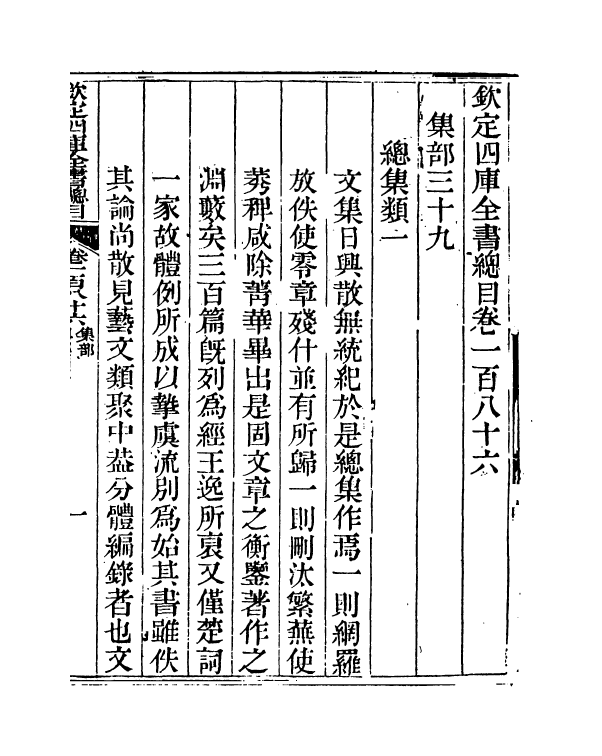 欽定四庫全書總目卷一百八十六
集部三十九
總集類一
文集日興散無統紀於是總集作焉一則網羅
放佚使零章殘什並有所歸一則刪汰繁蕪使
莠稗咸除菁華畢出是固文章之衡鑒著作之
淵藪矣三百篇既列為經王逸所裒又僅楚詞
一家故體例所成以摯虞流別為始其書雖佚
其論尚散見藝文類聚中葢分體編錄者也文
欽定四庫全書總目 卷一百八十六 集部 一